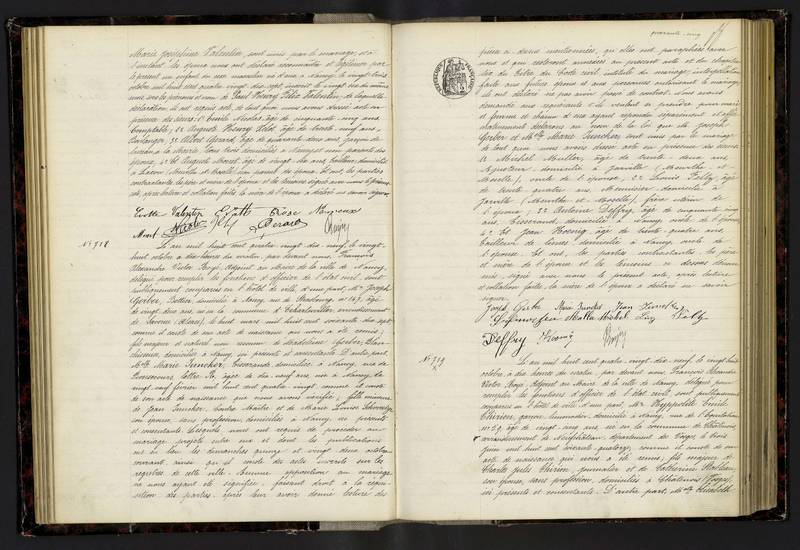 Marie Joséphine Valentin, sont unis par le mariage, et à
l'instant les époux nous ont déclaré reconnaître et légitimer par
le présent un enfant du sexe masculin né à Nancy, le vingt trois
octobre mil huit cent quatre vingt dix sept, inscrit le vingt six du même
mois sous les prénoms et nom de Paul Henry Félix Valentin, de laquelle
déclaration il est requis acte. De tout quoi nous avons dressé acte en
présence des sieurs Emile Nicolas, âgé de cinquante cinq ans,
Comptable, 2° Auguste Henry, âgé de trente neuf ans,
3° Albert Gérard, âgé de quarante deux ans,
à la Mairie, tous trois domiciliés à Nancy, non parents des
époux, 4° et Auguste Morel, âgé de vingt six ans, tailleur, domicilié
à Laxou (Meurthe et Moselle) non parent des époux. Et ont, les parties
contractantes, le père et mère de l'épouse et les témoins signé avec nous le présent
acte, après lecture et collation faite, la mère de l'époux a déclaré ne savoir signer.
Valentin
Morel Gérard
N° 718
L'an mil huit cent quatre vingt dix neuf, le vingt
huit octobre à dix heures du matin, par devant nous, François
Alexandre Victor Royé, Adjoint au Maire de la ville de Nancy,
délégué pour remplir les fonctions d'officier de l'état civil, sont
publiquement comparus en l'hôtel de ville, d'une part, Mr Joseph
Gerber, Bottier, domicilié à Nancy, rue de Strasbourg, n° 147, âgé
de vingt deux ans, né en la commune d'Eckartswiller, arrondissement
de Saverne (Alsace), le huit mars mil huit cent soixante dix sept,
comme il conste de son acte de naissance qui nous a été remis,
fils majeur et naturel non reconnu de Madeleine Gerber,
domiciliée à Nancy, ici présente et consentante. D'autre part,
Mlle Marie Juncker, Tisserande, domiciliée à Nancy, rue de
âgée de dix neuf ans, née à Nancy, le
vingt neuf février mil huit cent quatre vingt, comme il conste
de son acte de naissance que nous avons vérifié, fille mineure
de Jean Juncker, Contre Maître et de Marie Louise
son épouse, sans profession, domiciliés à Nancy, ici présents
et consentants. Lesquels nous ont requis de procéder au
mariage projeté entre eux et dont les publications
ont eu lieu les dimanches quinze et vingt deux octobre
courant, ainsi qu'il conste des actes inscrits sur les
registres de cette ville. Aucune opposition au mariage
ne nous ayant été signifiée, faisant droit à la réqui-
sition des parties, après leur avoir donné lecture des
quarante cinq
RÉPUBLIQUE FRANÇAISE
pièces ci-dessus mentionnées, qu'elles ont paraphées avec
nous et qui resteront annexées au présent acte et du chapitre
six du titre du Code civil intitulé du mariage, interpellation
faite aux futurs époux et aux personnes autorisant le mariage,
ils ont déclaré ne pas avoir passé de contrat. Nous avons
demandé aux requérants s'ils veulent se prendre pour mari
et femme et chacun d'eux ayant répondu séparément et affir-
mativement déclarons au nom de la loi que Mr Joseph
Gerber et Mlle Marie Juncker, sont unis par le mariage.
De tout quoi nous avons dressé acte en présence des sieurs
1° Michel Muller, âgé de trente deux ans,
Ajusteur, domicilié à Jarville (Meurthe et
Moselle), oncle de l'épouse, 2° Louis Felly, âgé
de trente quatre ans, Menuisier, domicilié à
Jarville (Meurthe et Moselle), frère utérin de
l'épouse, 3° Antoine Jeffry, âgé de cinquante cinq
ans, Tisserand, domicilié à Nancy, oncle de l'épouse,
4° Et Jean Hoenig, âgé de trente quatre ans,
tailleur de limes, domicilié à Nancy, oncle de
l'épouse. Et ont, les parties contractantes, les père
et mère de l'épouse et les témoins ci dessus dénom-
més, signé avec nous le présent acte, après lecture
et collation faite, la mère de l'époux a déclaré ne savoir
signer.
Joseph Gerber Marie Juncker Jean Juncker
Michel Felly
Jeffry Hoenig
N° 719
L'an mil huit cent quatre vingt dix neuf, le vingt huit
octobre, à dix heures du matin, par devant nous, François Alexandre
Victor Royé, Adjoint au Maire de la ville de Nancy, délégué pour
remplir les fonctions d'officier de l'état civil, sont publiquement
comparus en l'hôtel de ville, d'une part, Mr Hyppolite Emile
Thirion, garçon limonadier, domicilié à Nancy, rue de l'Equitation
n° 29, âgé de vingt cinq ans, né en la commune de Châtenois,
arrondissement de Neufchâteau, département des Vosges, le trois
juin mil huit cent soixante quatorze, comme il conste de son
acte de naissance qui nous a été remis, fils majeur de
Charles Jules Thirion, journalier et de Catherine
son épouse, sans profession, domiciliés à Châtenois (Vosges),
ici présents et consentants. D'autre part, Mlle Elisabeth